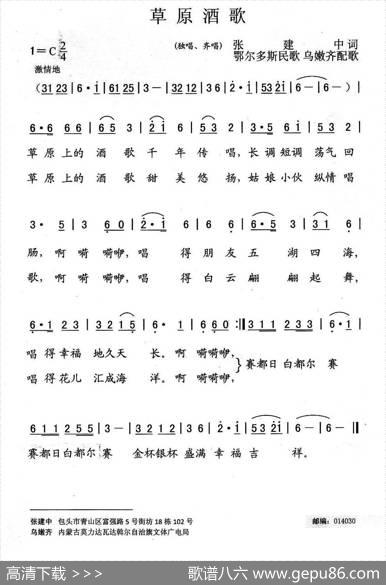 草原酒歌
1=C 2/4
(独唱、齐唱)
张建中词
鄂尔多斯民歌 乌嫩齐配歌
激情地
(31 23 | 6·i | 61 25 | 3— | 32 12 | 36 | 2·i | 53 2i | 6— | 6—) |
6·6 66 | 65 3 | 2i 5 | 6— | 6·6 53 | 22 6 |
草原上的酒歌千年传唱,长调短调荡气回
草原上的酒歌甜美悠扬,姑娘小伙纵情唱
肠,啊嗬嗬咿,唱得朋友五湖四海,
歌,啊嗬嗬咿,唱得白云翩翩起舞,
唱得幸福地久天长。啊嗬嗬咿,
赛都日白都尔赛
唱得花儿汇成海洋。啊嗬嗬咿,
6 11 12 55 | 3— | 32 12 | 36 | 2·i | 53 2i | 6— | 6— ‖
赛都日白都尔赛 金杯银杯盛满幸福吉祥。
张建中 包头市青山区富强路5号街坊18栋102号
邮编:014030
乌嫩齐 内蒙古莫力达瓦达斡尔自治旗文体广电局
高清下载 - 》
歌谱八六 www.gepu86.com